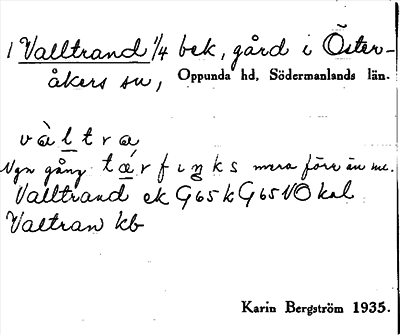 1 Valltrand 1/4 bek, gård i Öster-
åkers sn, Oppunda hd, Södermanlands län.
vàl̲tra
Ngn gång tæ̲rfıŋks mera förr än nu.
Valltrand ek G65k G65VO kal
Valtran kb
Karin Bergström 1935.